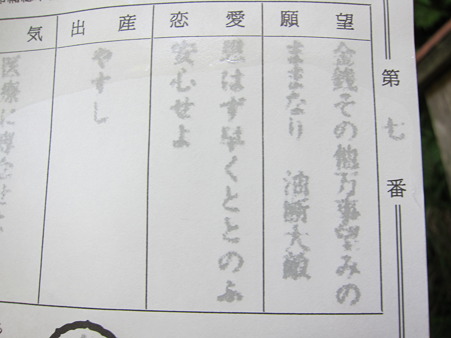 第七番
願望
金銭その他万事望みの
ままなり 油断大敵
恋愛
思はず早くととのふ
安心せよ
出産
やすし
気
医療に専念せよ